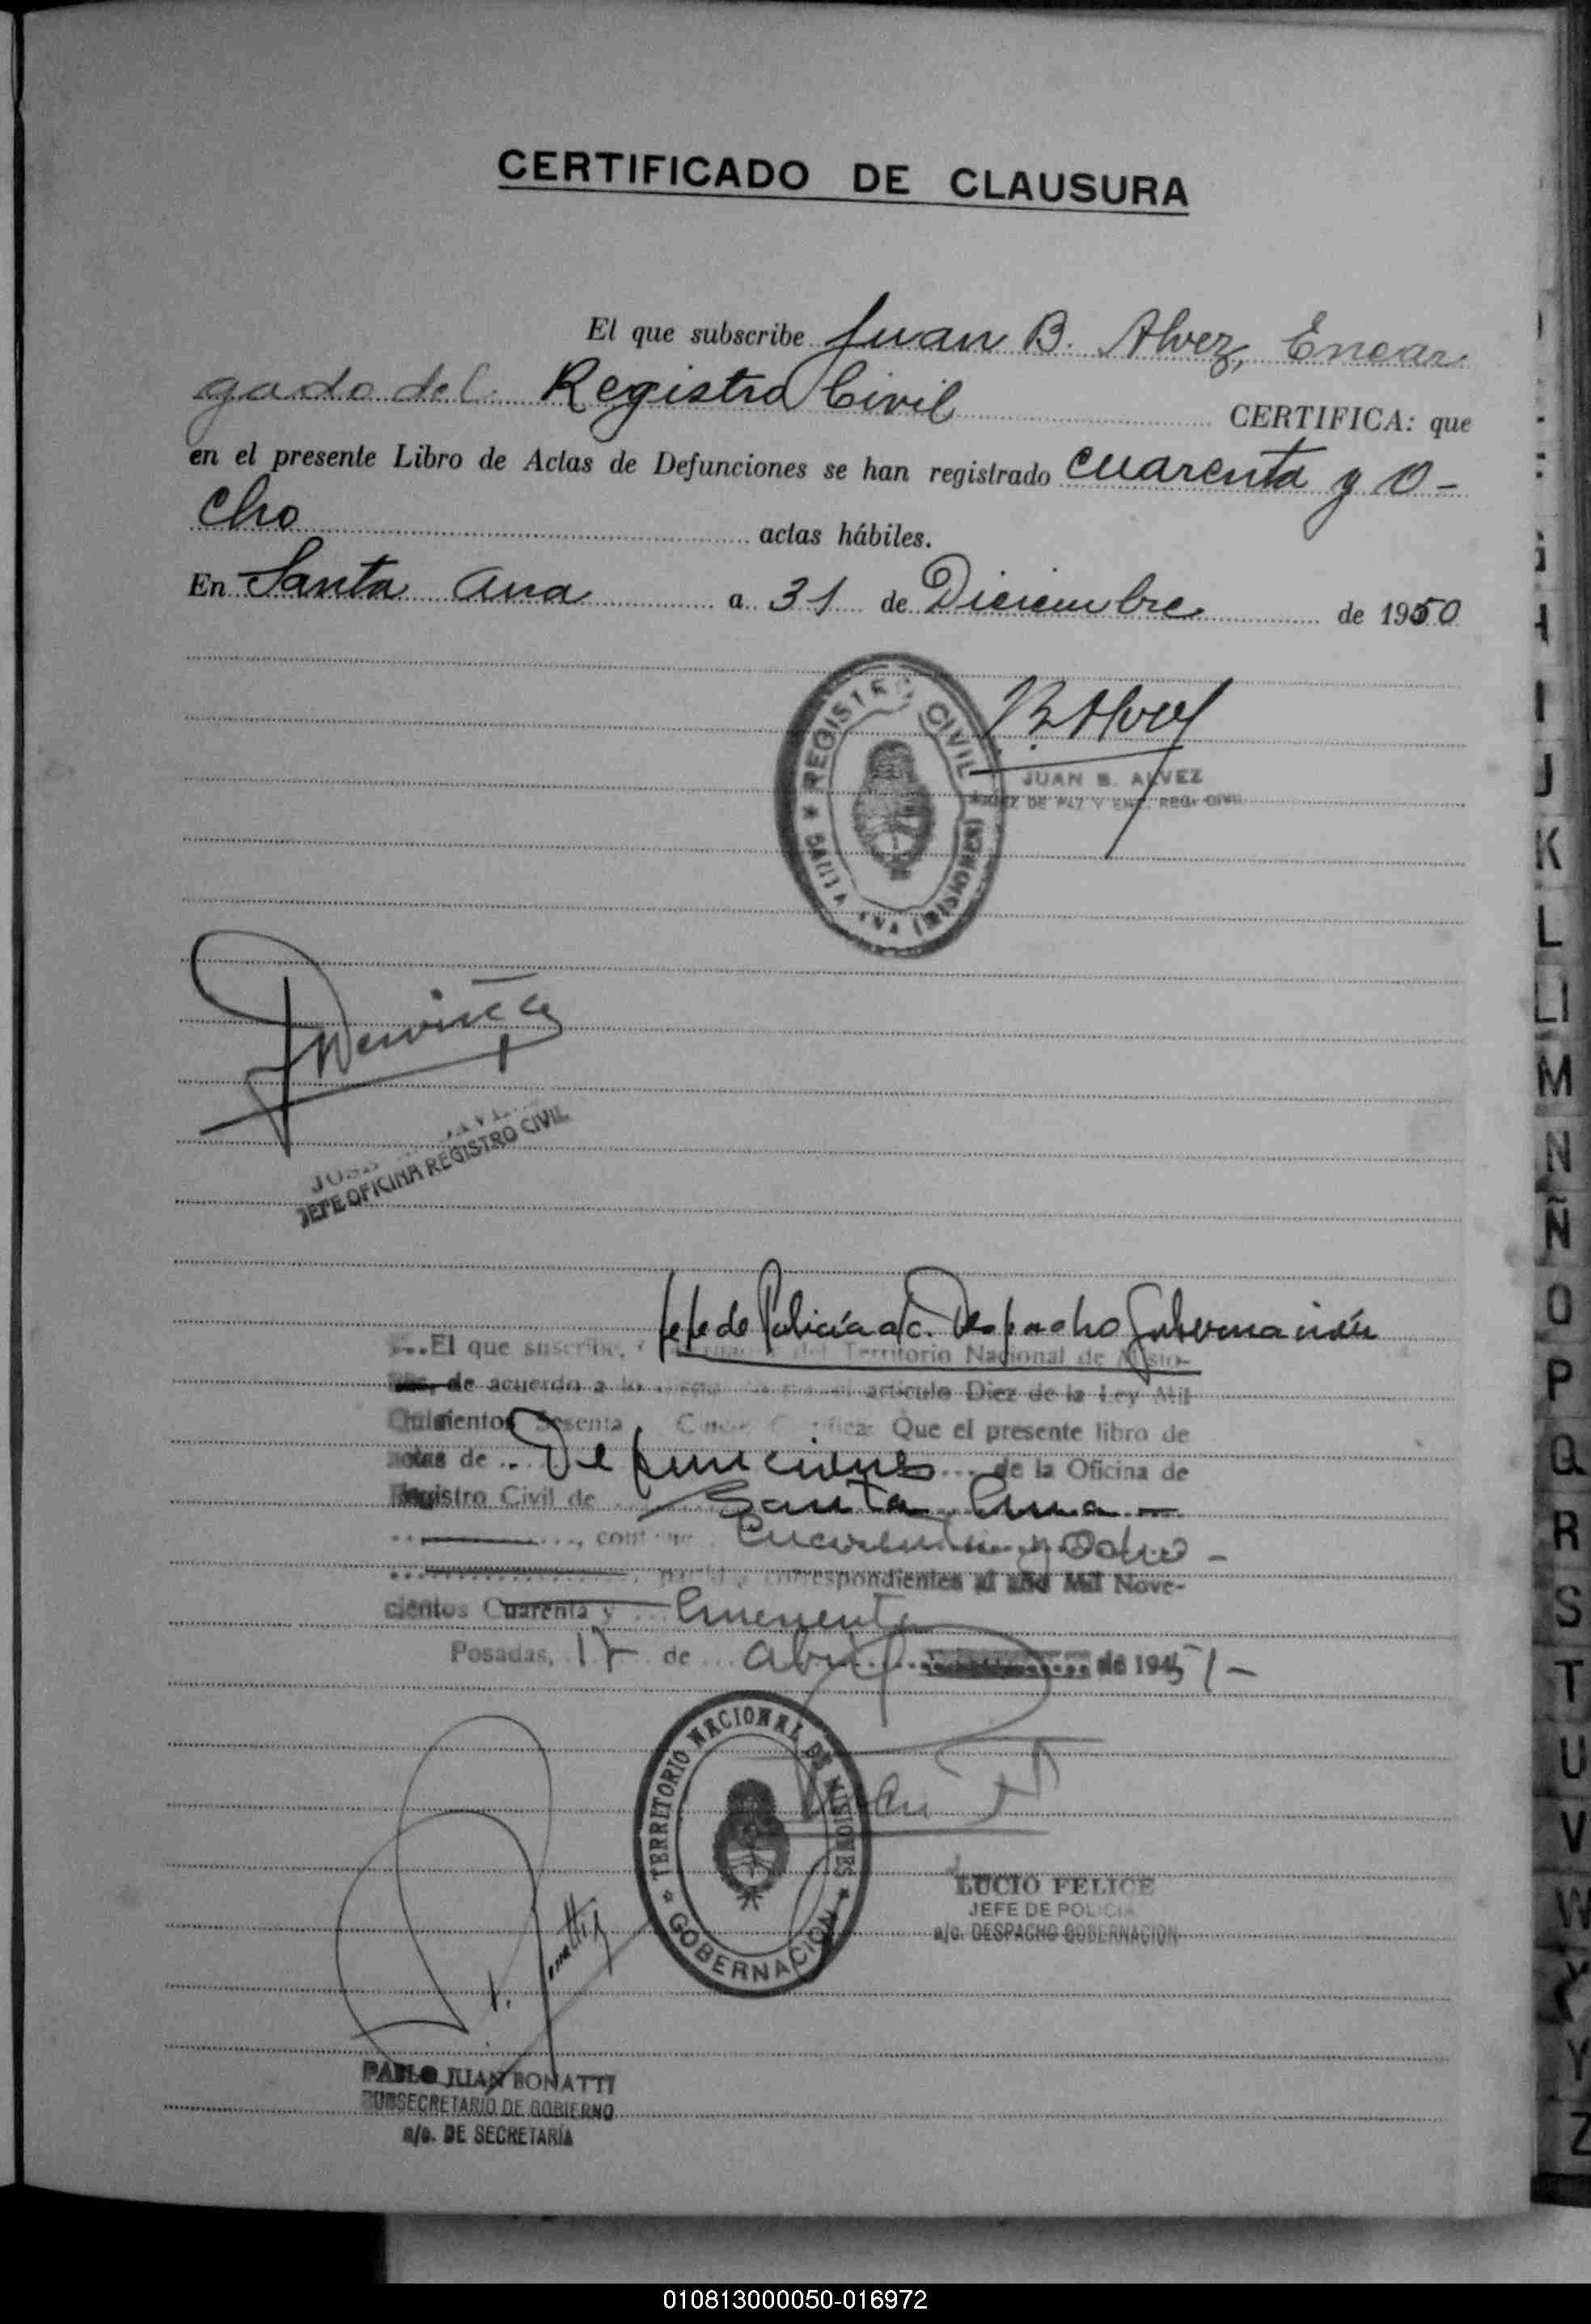 CERTIFICADO DE CLAUSURA
El que subscribe Juan B. Alvez, Encar
gado del Registro Civil CERTIFICA: que
en el presente Libro de Actas de Defunciones se han registrado cuarenta y o-
cho actas hábiles.
En Santa Ana a 31 de Diciembre de 1950
REGISTRO CIVIL
SANTA ANA (MISIONES)
B Alvez
JUAN B. ALVEZ
JUEZ DE PAZ Y ENC. REG. CIVIL
JEFE OFICINA REGISTRO CIVIL
Jefe de Policía a/c. Despacho Gobernación
El que suscribe, del Territorio Nacional de Misio-
nes, de acuerdo a lo artículo Diez de la Ley Mil
Quinientos Sesenta Cinco Certifica: Que el presente libro de
actas de Defunciones de la Oficina de
Registro Civil de Santa Ana
contiene Cuarenta y Ocho
correspondientes al año Mil Nove-
cientos Cuarenta y Cincuenta
Posadas, 17 de abril de 1951
TERRITORIO NACIONAL DE MISIONES
GOBERNACION
LUCIO FELICE
JEFE DE POLICIA
a/c. DESPACHO GOBERNACION
PABLO JUAN BONATTI
SUBSECRETARIO DE GOBIERNO
a/c. DE SECRETARÍA
I
J
K
L
Ll
M
N
Ñ
O
P
Q
R
S
T
U
V
W
X
Y
Z
010813000050-016972